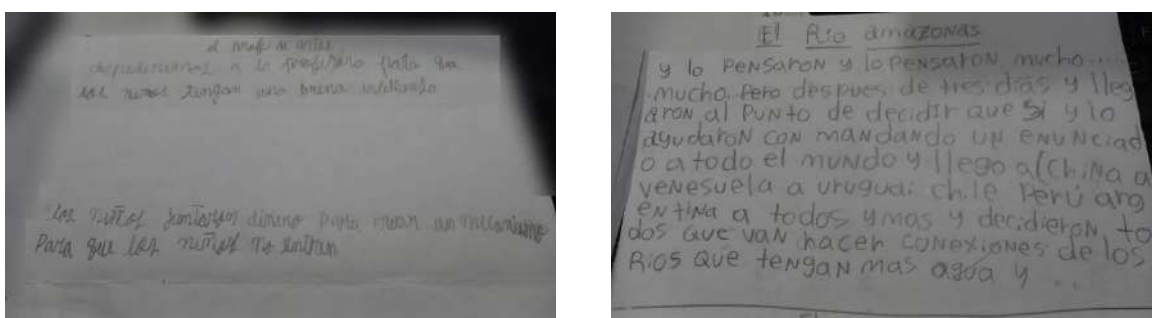 a la
que los niños tengan una buena
los niños dinero para crear un mecanismo
Para que los niños no entran
El Rio amazonas
y lo PeNSaroN y lo PeNSaroN mucho...
mucho. Pero despues de tres dias y lleg
aroN al PuNto de decidir que Si y lo
ayudaroN coN maNdaNdo uN eNuNciad
o a todo el muNdo y llego a (ChiNa a
veNesuela a uruguai chile Perú arg
eNtiNa a todos y mas y decidieroN to
dos que vaN hacer coNexioNes de los
Rios que teNgaN mas agua y ...